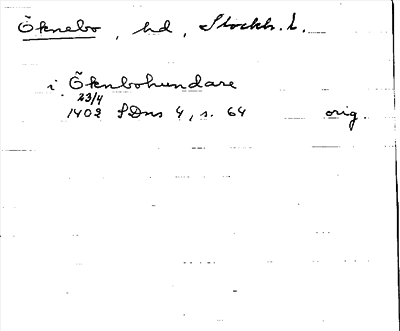 Öknebo, hd, Stockh. l.
i Öknbohundare
23/4
1402 SDns 4, s. 64 orig.